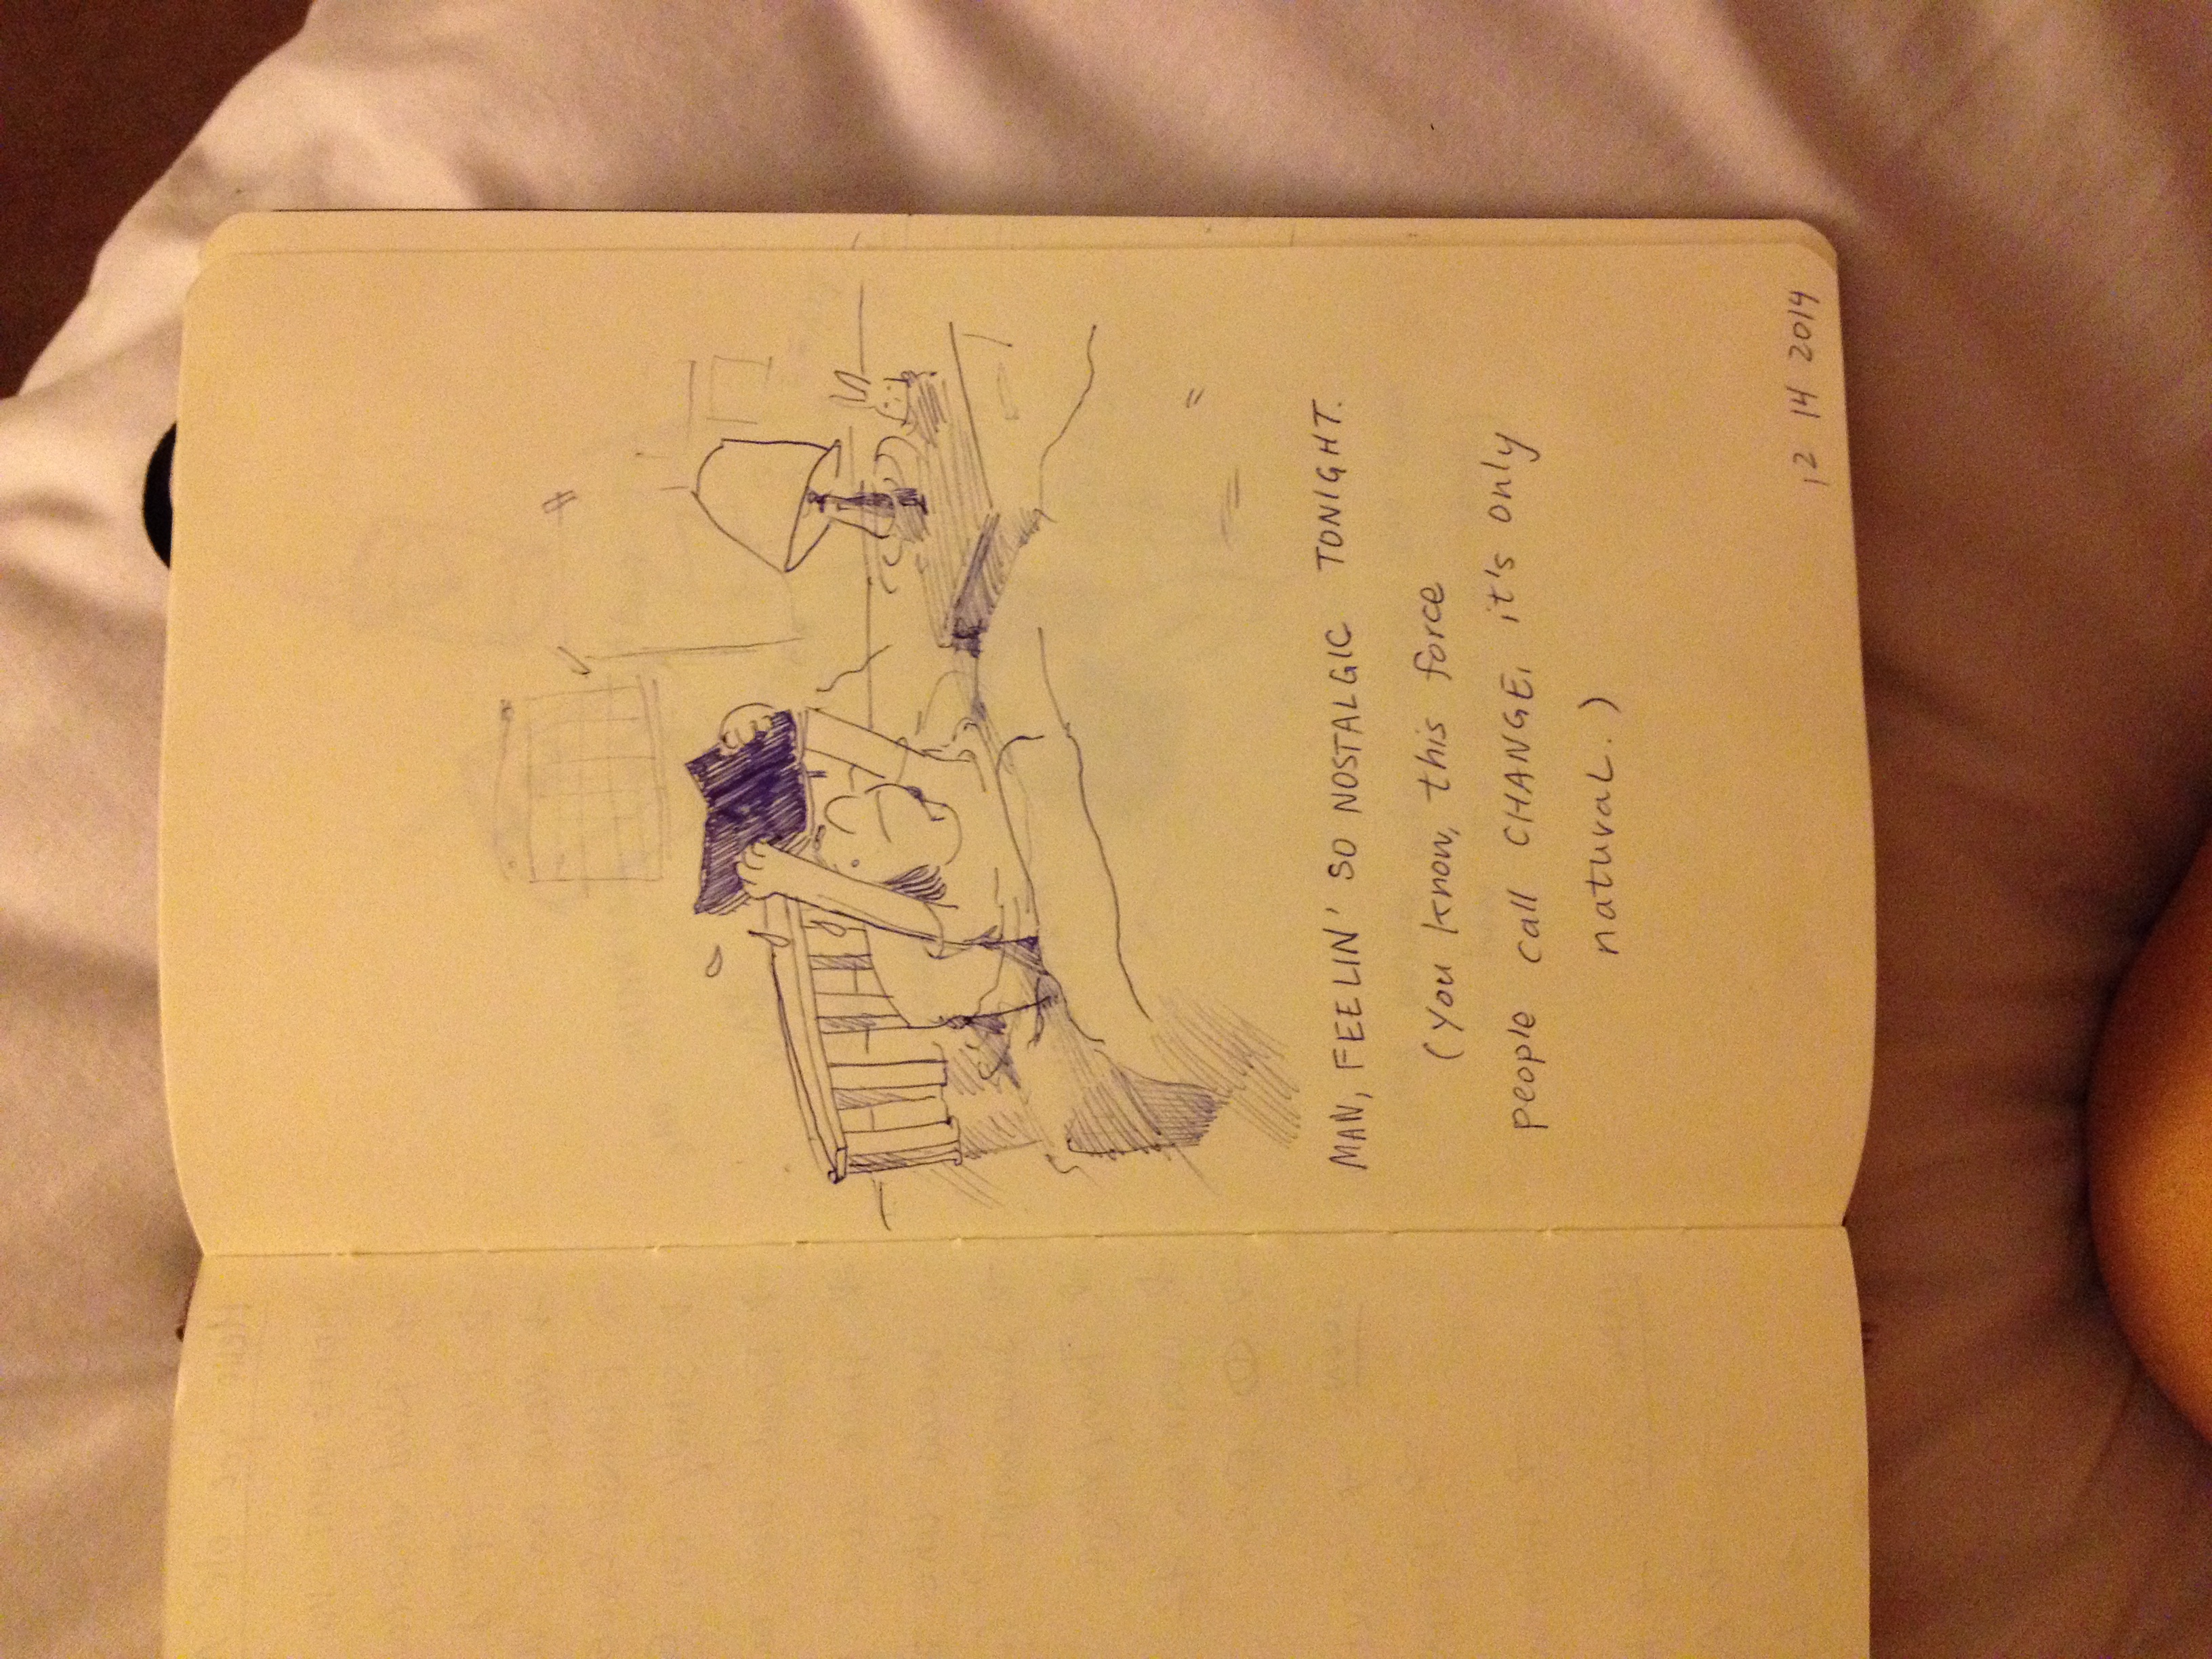 MAN, FEELIN' SO NOSTALGIC TONIGHT.
(You know, this force
people call CHANGE, it's only
natural.)
12 14 2014